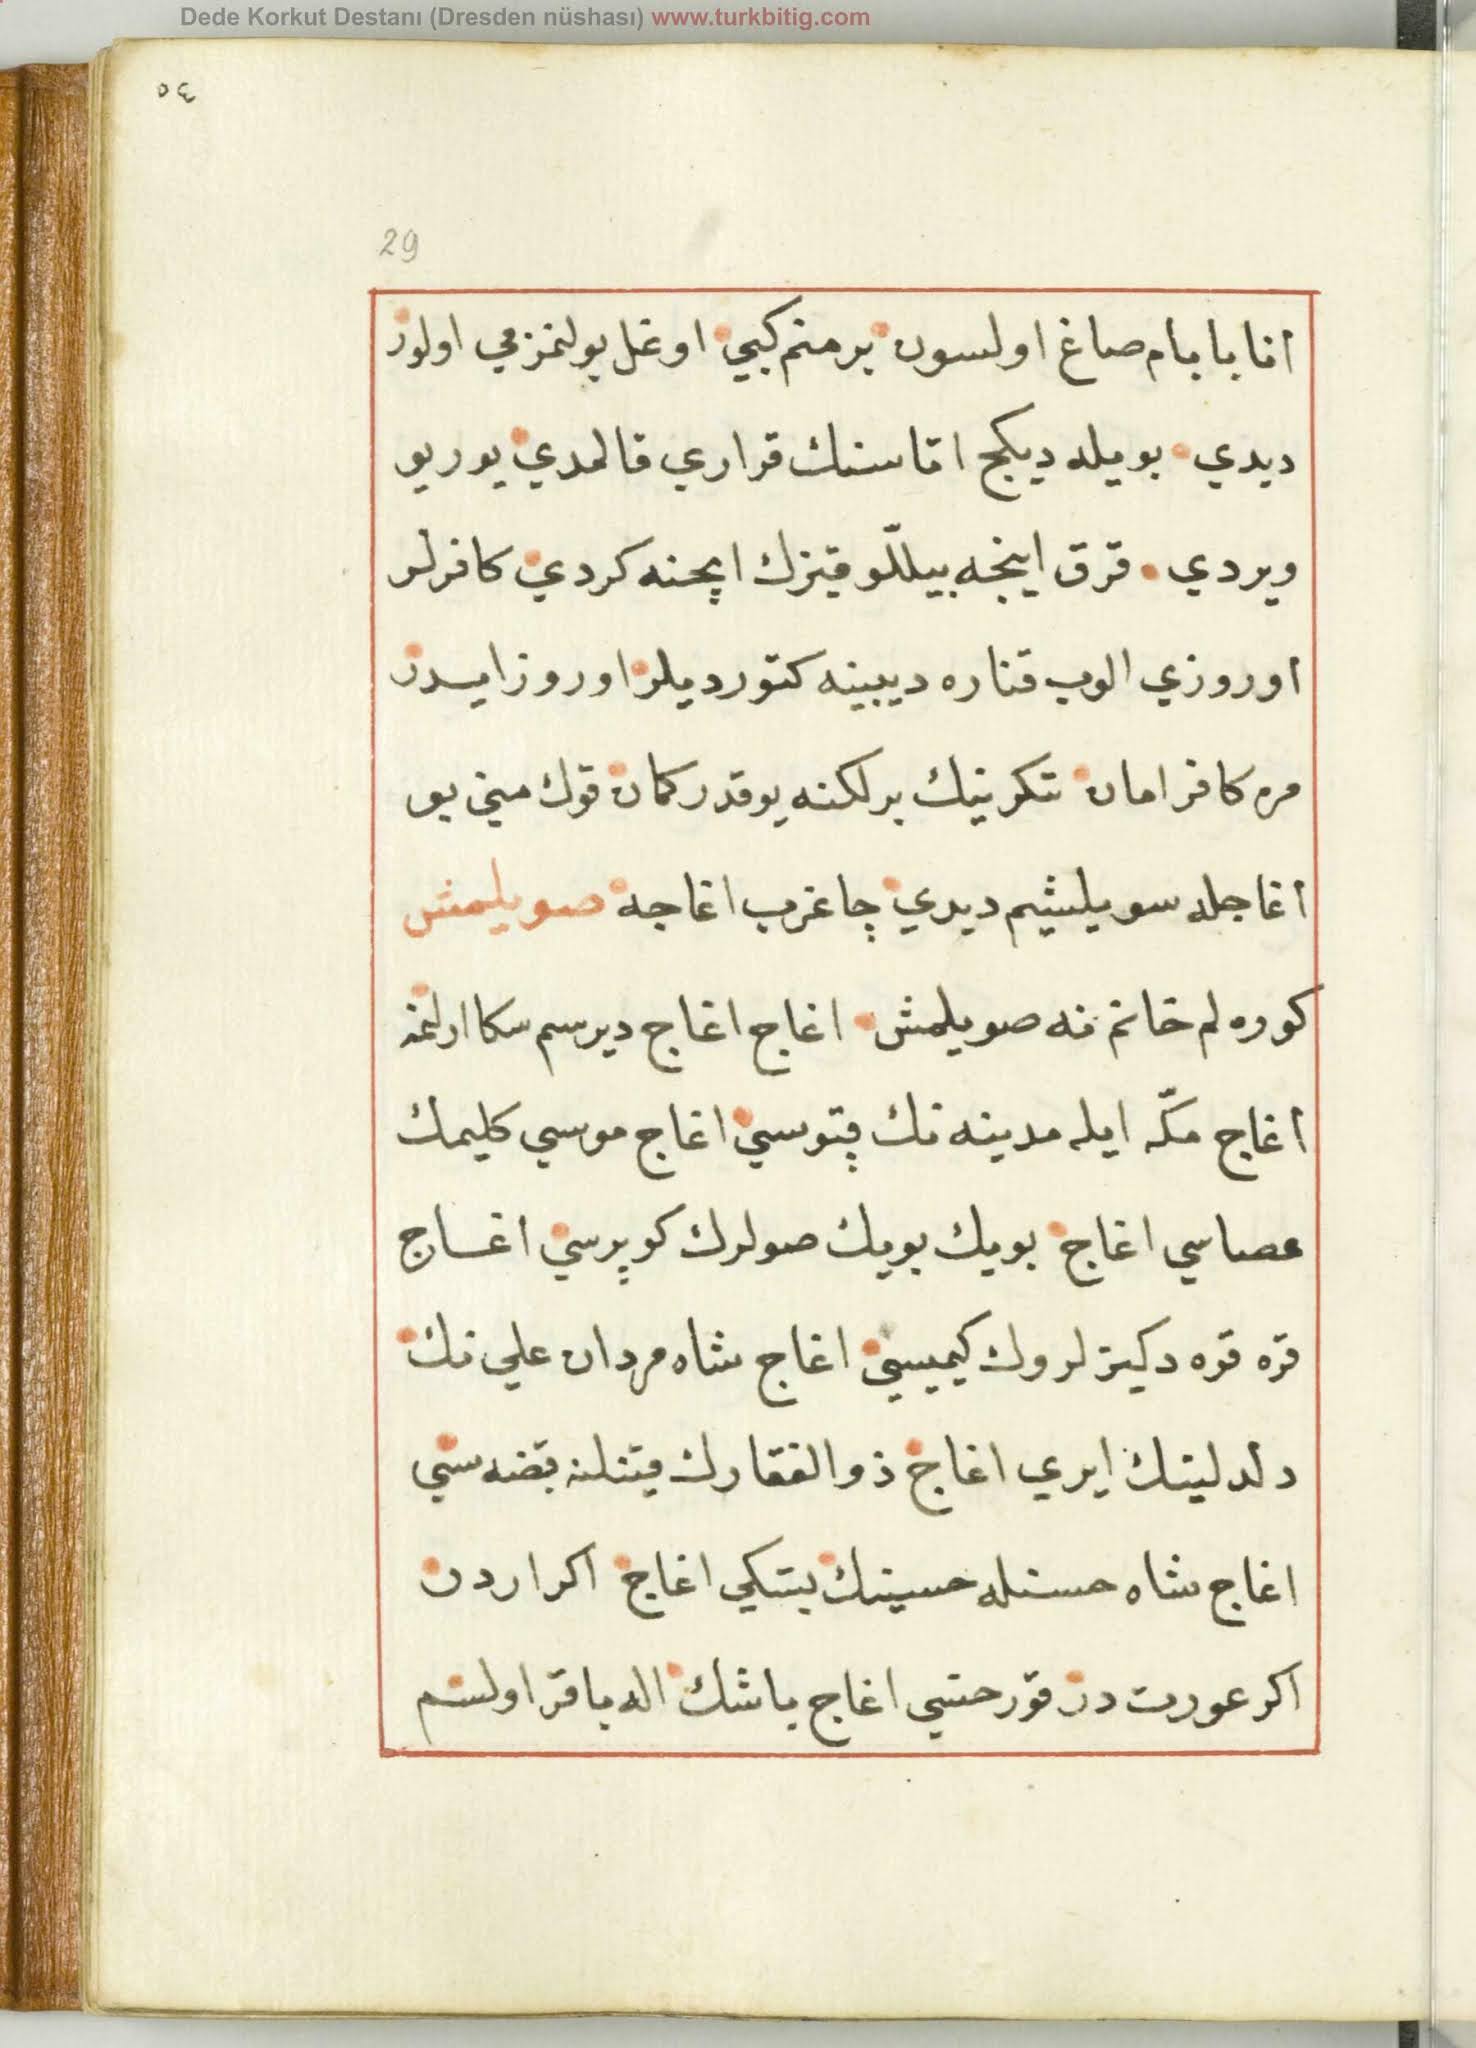 Dede Korkut Destanı (Dresden nüshası) www.turkbitig.com
٥٤
29
انا بابام صاغ اولسون بر منم كبي اوغل بولنمزمي اولور
ديدي بويله ديكج اناسنك قراري قالمدي يوريو
ويردي قرق اينجه بيللّو قيزك اچنه كردي كافرلر
اوروزي الوب قناره ديبينه كتورديلر اوروز ايدر
مره كافر امان تنكرينك برلكنه يوقدر كمان قوك مني بو
اغاجله سويليشيم ديدي چاغرب اغاجه صويلمش
كوره لم خانم نه صويلمش اغاج اغاج ديرسم سكا ارلنمه
اغاج مكّه ايله مدينه نك قپوسي اغاج موسي كليمك
عصاسي اغاج بويك بويك صولرك كوپرسي اغاج
قره قره دكيزلروك كيميسي اغاج شاه مردان علي نك
دلدلينك ايري اغاج ذو الفقارك قينله قبضه سي
اغاج شاه حسنله حسينك بشكي اغاج اكر اردن
اكر عورت در قورخسي اغاج باشك اله باقر اولسم